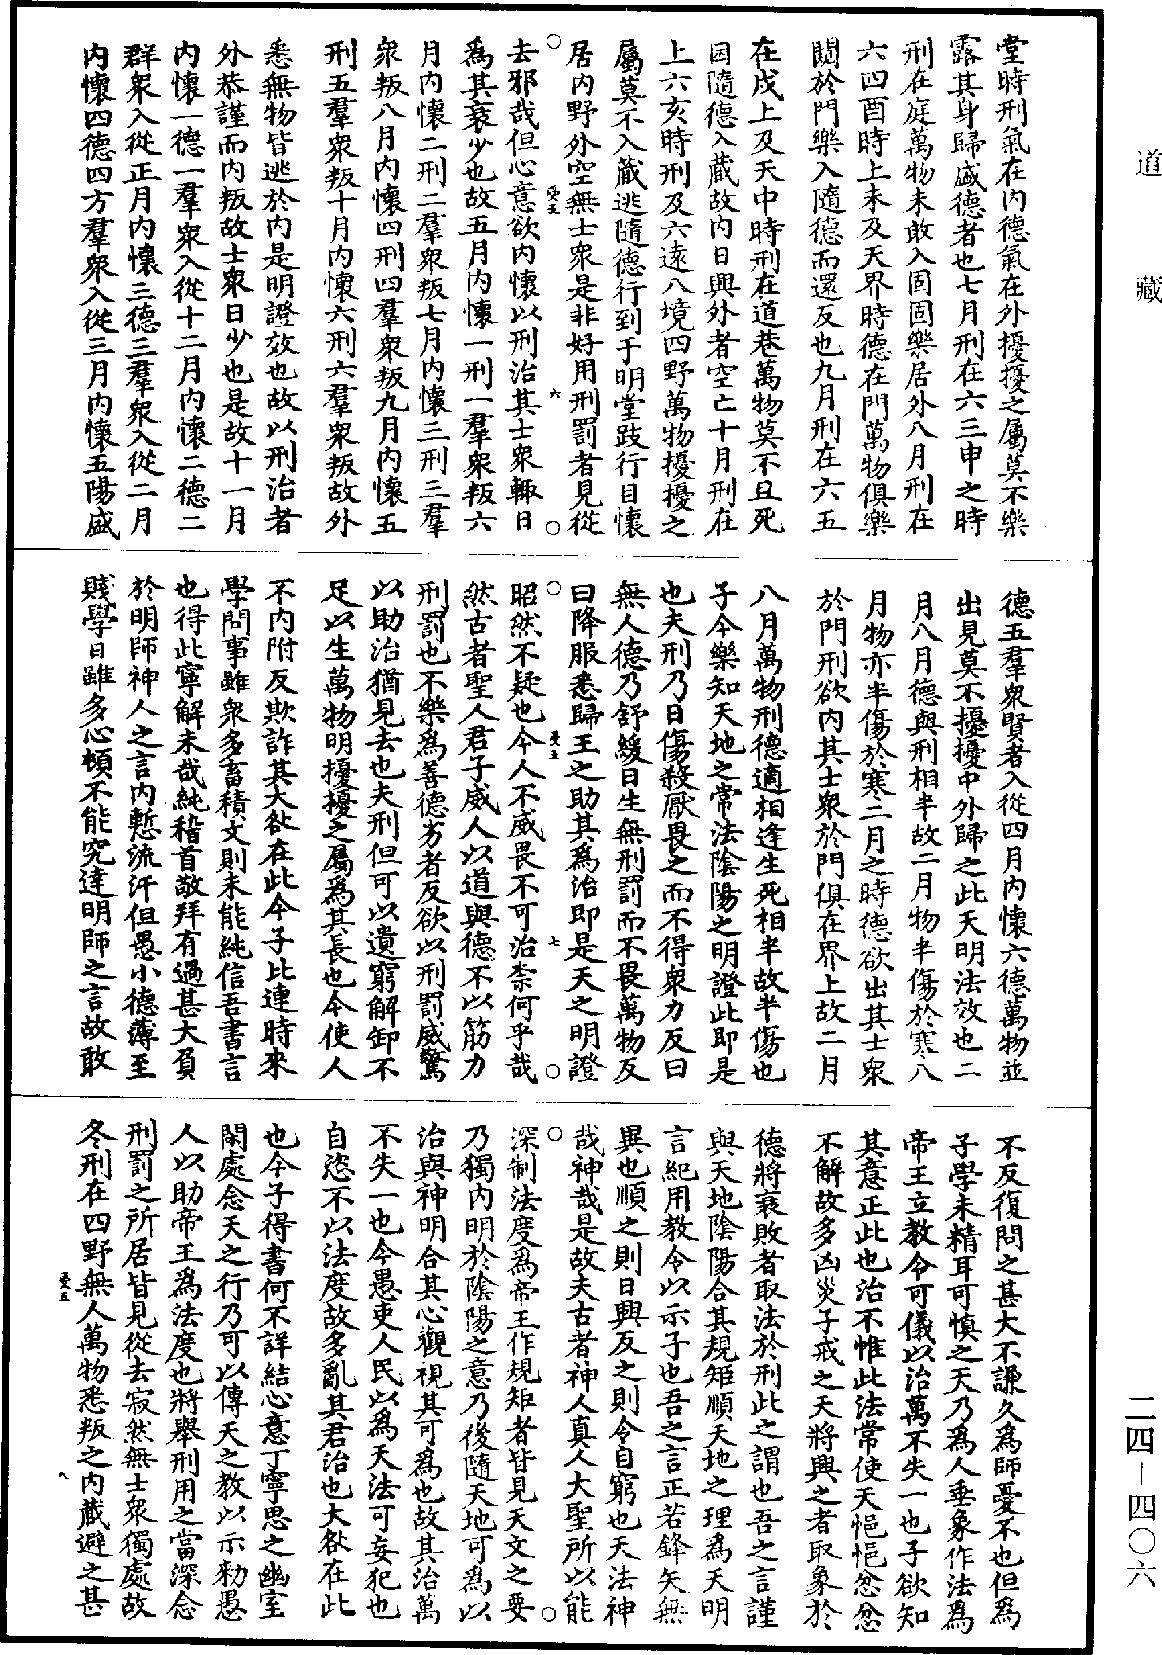 道藏
堂時刑氣在內德氣在外擾擾之屬莫不樂
露其身歸盛德者也七月刑在六三申之時
刑在庭萬物未敢入固固樂居外八月刑在
六四酉時上未及天界時德在門萬物俱樂
闚於門樂入隨德而還反也九月刑在六五
在戌上及天中時刑在道巷萬物莫不且死
困隨德入藏故內日興外者空亡十月刑在
上六亥時刑及六遠八境四野萬物擾擾之
屬莫不入藏逃隨德行到于明堂跂行目懷
居內野外空無士衆是非好用刑罰者見從
去邪哉但心意欲內懷以刑治其士衆輒日
爲其衰少也故五月內懷一刑一羣衆叛六
月內懷二刑二羣衆叛七月內懷三刑三羣
衆叛八月內懷四刑四羣衆叛九月內懷五
刑五羣衆叛十月內懷六刑六羣衆叛故外
悉無物皆逃於內是明證效也故以刑治者
外恭謹而內叛故士衆日少也是故十一月
內懷一德一羣衆入從十二月內懷二德二
群衆入從正月內懷三德三羣衆入從二月
內懷四德四方羣衆入從三月內懷五陽盛
德五羣衆賢者入從四月內懷六德萬物並
出見莫不擾擾中外歸之此天明法效也二
月八月德與刑相半故二月物半傷於寒八
月物亦半傷於寒二月之時德欲出其士衆
於門刑欲內其士衆於門俱在界上故二月
八月萬物刑德適相逢生死相半故半傷也
子今樂知天地之常法陰陽之明證此即是
也夫刑乃日傷殺厭畏之而不得衆力反曰
無人德乃舒緩日生無刑罰而不畏萬物反
曰降服悉歸王之助其爲治即是天之明證
昭然不疑也今人不威畏不可治柰何乎哉
然古者聖人君子威人以道與德不以筋力
刑罰也不樂爲善德劣者反欲以刑罰威驚
以助治猶見去也夫刑但可以遺窮解卸不
足以生萬物明擾擾之屬爲其長也今使人
不內附反欺詐其大咎在此今子比連時來
學問事雖衆多畜積文則未能純信吾書言
也得此寧解未哉純稽首敬拜有過甚大負
於明師神人之言內慙流汗但愚小德薄至
賤學日雖多心頓不能究達明師之言故敢
不反復問之甚大不謙久爲師憂不也但爲
子學未精耳可慎之天乃爲人垂象作法爲
帝王立教令可儀以治萬不失一也子欲知
其意正此也治不惟此法常使天悒悒忿忿
不解故多凶災子戒之天將興之者取象於
德將衰敗者取法於刑此之謂也吾之言謹
與天地陰陽合其規矩順天地之理爲天明
言紀用教令以示子也吾之言正若鋒矢無
異也順之則日興反之則令自窮也天法神
哉神哉是故夫古者神人真人大聖所以能
深制法度爲帝王作規矩者皆見天文之要
乃獨內明於陰陽之意乃後隨天地可爲以
治與神明合其心觀視其可爲也故其治萬
不失一也今愚吏人民以爲天法可妄犯也
自恣不以法度故多亂其君治也大咎在此
也今子得書何不詳結心意丁寧思之幽室
閑處念天之行乃可以傳天之教以示勑愚
人以助帝王爲法度也將舉刑用之當深念
刑罰之所居皆見從去寂然無士衆獨處故
冬刑在四野無人萬物悉叛之內藏避之甚
受五 六
受五 七
受五 八
二四－四〇六